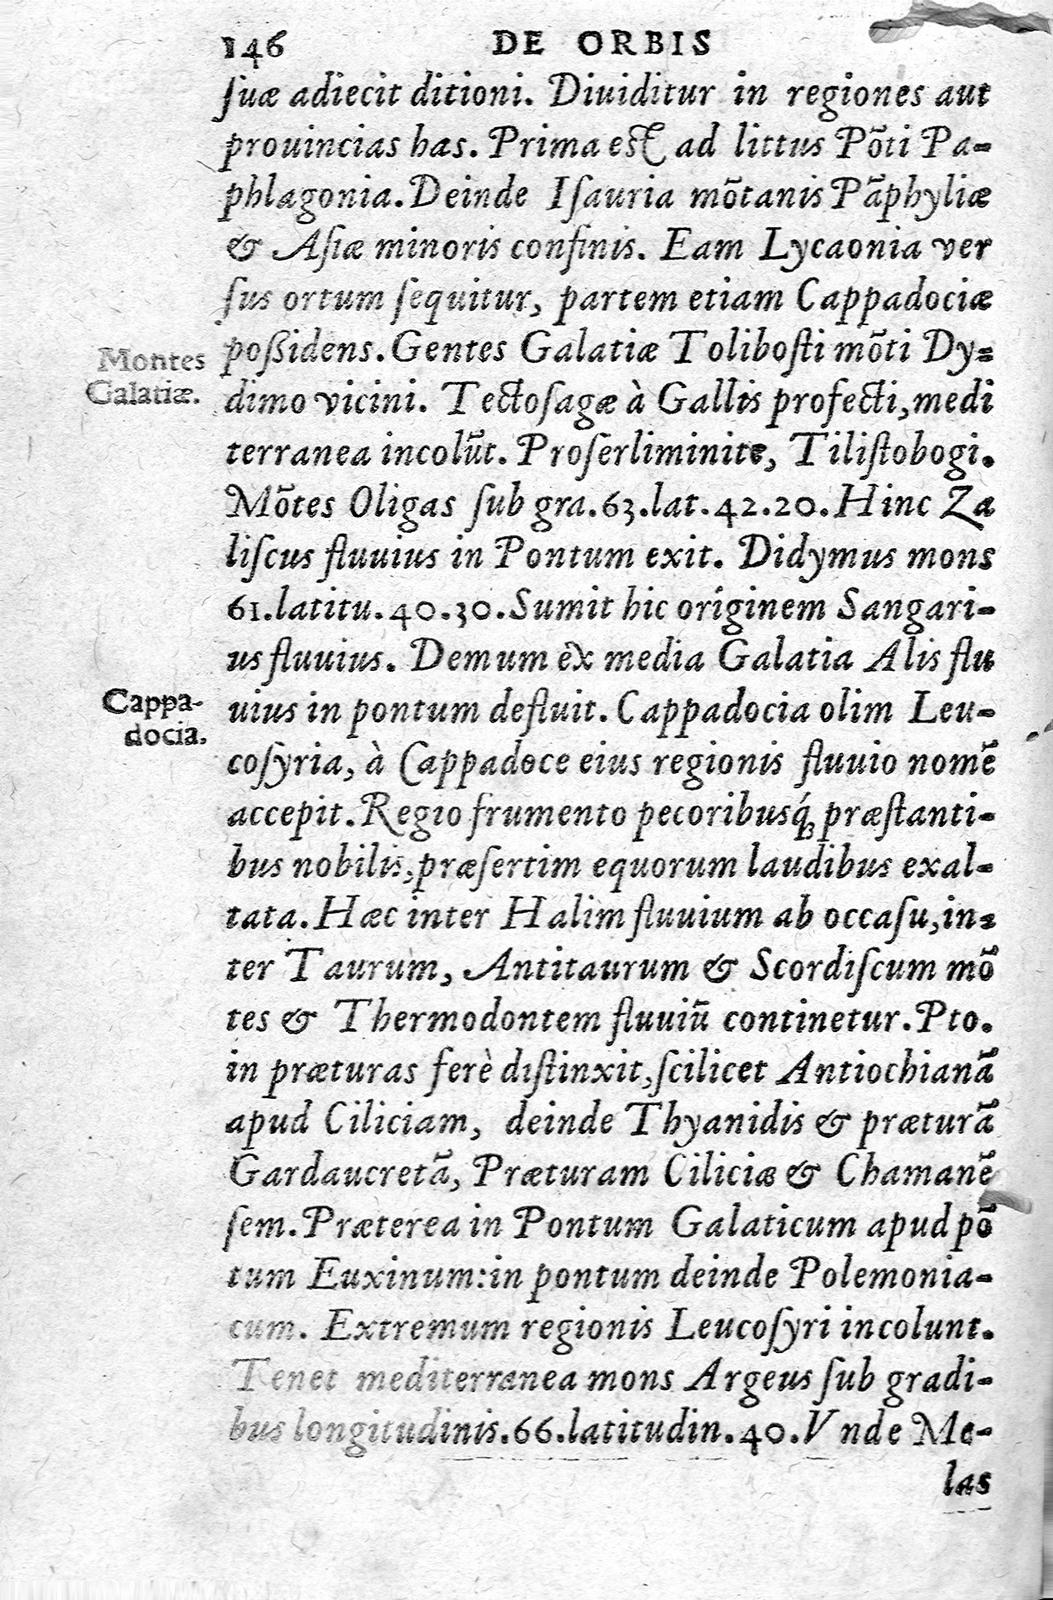 146 DE ORBIS
ſuæ adiecit ditioni. Diuiditur in regiones aut
prouincias has. Prima eſt ad littus Põti Pa-
phlagonia. Deinde Iſauria mõtanis Pãphyliæ
& Aſiæ minoris confinis. Eam Lycaonia ver
ſus ortum ſequitur, partem etiam Cappadociæ
poßidens. Gentes Galatiæ Toliboſti mõti Dy-
Montes
Galatiæ.
dimo vicini. Tectoſagæ à Gallis profecti, medi
terranea incolũt. Proſerliminite, Tiliſtobogi.
Mõtes Oligas ſub gra. 63. lat. 42. 20. Hinc Za
liſcus fluuius in Pontum exit. Didymus mons
61. latitu. 40. 30. Sumit hic originem Sangari-
us fluuius. Demum ex media Galatia Alis flu
Cappa-
docia.
uius in pontum defluit. Cappadocia olim Leu-
coſyria, à Cappadoce eius regionis fluuio nomẽ
accepit. Regio frumento pecoribusq́ꝫ præſtanti-
bus nobilis, præſertim equorum laudibus exal-
tata. Hæc inter Halim fluuium ab occaſu, in-
ter Taurum, Antitaurum & Scordiſcum mõ
tes & Thermodontem fluuiũ continetur. Pto.
in præturas ferè diſtinxit, ſcilicet Antiochianã
apud Ciliciam, deinde Thyanidis & præturã
Gardaucretã, Præturam Ciliciæ & Chamanẽ
ſem. Præterea in Pontum Galaticum apud põ
tum Euxinum: in pontum deinde Polemonia-
cum. Extremum regionis Leucoſyri incolunt.
Tenet mediterranea mons Argeus ſub gradi-
bus longitudinis. 66. latitudin. 40. Vnde Me-
las